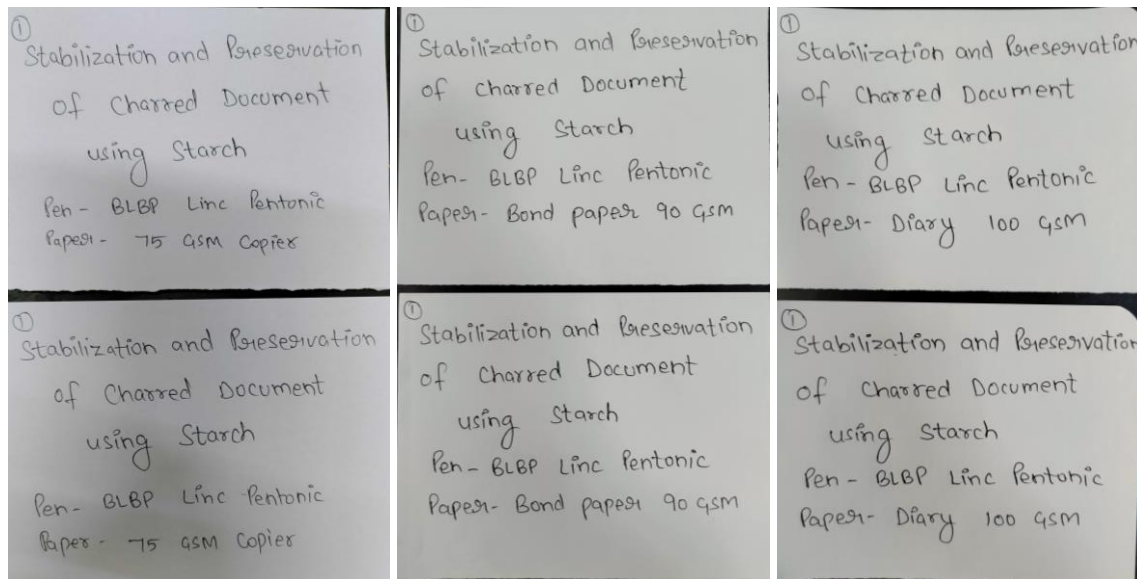 ①
Stabilization and Preservation
of Charred Document
using Starch
Pen - BLBP Linc Pentonic
Paper - 75 GSM Copier
①
Stabilization and Preservation
of Charred Document
using Starch
Pen - BLBP Linc Pentonic
Paper - Bond paper 90 GSM
①
Stabilization and Preservation
of Charred Document
using Starch
Pen - BLBP Linc Pentonic
Paper - Diary 100 GSM
①
Stabilization and Preservation
of Charred Document
using Starch
Pen - BLBP Linc Pentonic
Paper - 75 GSM Copier
①
Stabilization and Preservation
of Charred Document
using Starch
Pen - BLBP Linc Pentonic
Paper - Bond paper 90 GSM
①
Stabilization and Preservation
of Charred Document
using Starch
Pen - BLBP Linc Pentonic
Paper - Diary 100 GSM